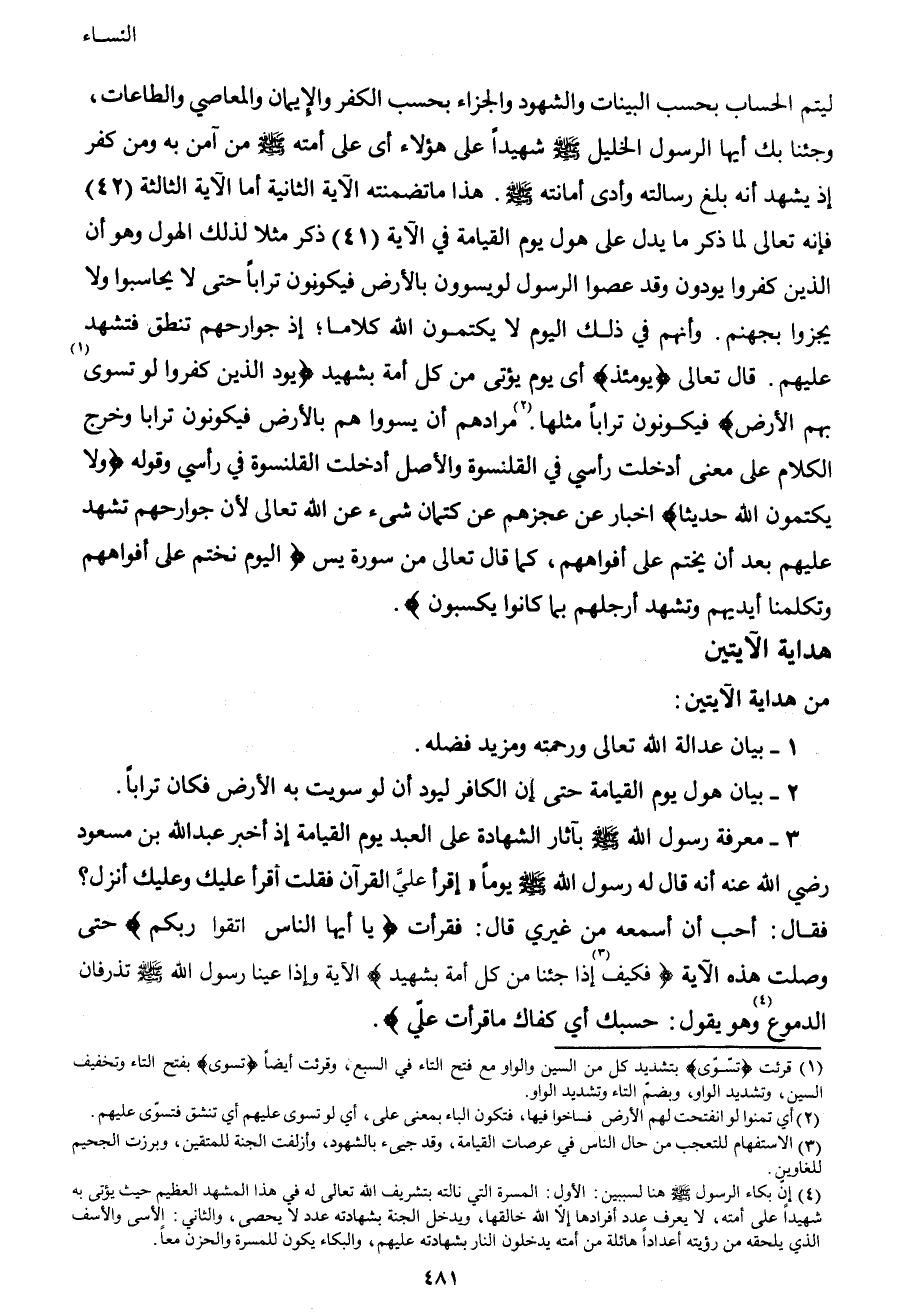 النساء
ليتم الحساب بحسب البينات والشهود والجزاء بحسب الكفر والإيمان والمعاصي والطاعات،
وجئنا بك أيها الرسول الخليل ﷺ شهيداً على هؤلاء أى على أمته ﷺ من آمن به ومن كفر
إذ يشهد أنه بلغ رسالته وأدى أمانته ﷺ. هذا ماتضمنته الآية الثانية أما الآية الثالثة (٤٢)
فإنه تعالى لما ذكر ما يدل على هول يوم القيامة في الآية (٤١) ذكر مثلا لذلك الهول وهو أن
الذين كفروا يودون وقد عصوا الرسول لويسوون بالأرض فيكونون تراباً حتى لا يحاسبوا ولا
يجزوا بجهنم. وأنهم في ذلك اليوم لا يكتمون الله كلاما؛ إذ جوارحهم تنطق فتشهد
عليهم. قال تعالى ﴿يومئذ﴾ أى يوم يؤتى من كل أمة بشهيد ﴿يود الذين كفروا لو تسوى(١)
بهم الأرض﴾ فيكونون تراباً مثلها.(٢) مرادهم أن يسووا هم بالأرض فيكونون ترابا وخرج
الكلام على معنى أدخلت رأسي في القلنسوة والأصل أدخلت القلنسوة في رأسي وقوله ﴿ولا
يكتمون الله حديثا﴾ اخبار عن عجزهم عن كتمان شىء عن الله تعالى لأن جوارحهم تشهد
عليهم بعد أن يختم على أفواههم، كما قال تعالى من سورة يس ﴿ اليوم نختم على أفواههم
وتكلمنا أيديهم وتشهد أرجلهم بما كانوا يكسبون ﴾.
هداية الآيتين
من هداية الآيتين:
١ ـ بيان عدالة الله تعالى ورحمته ومزيد فضله.
٢ ـ بيان هول يوم القيامة حتى إن الكافر ليود أن لو سويت به الأرض فكان تراباً.
٣ ـ معرفة رسول الله ﷺ بآثار الشهادة على العبد يوم القيامة إذ أخبر عبدالله بن مسعود
رضي الله عنه أنه قال له رسول الله ﷺ يوماً «إقرأ عليَّ القرآن فقلت أقرأ عليك وعليك أنزل؟
فقال: أحب أن أسمعه من غيري قال: فقرأت ﴿ يا أيها الناس اتقوا ربكم ﴾ حتى
وصلت هذه الآية ﴿ فكيف(٣) إذا جئنا من كل أمة بشهيد ﴾ الآية وإذا عينا رسول الله ﷺ تذرفان
الدموع(٤) وهو يقول: حسبك أي كفاك ماقرأت عليّ ﴾.
(١) قرئت ﴿تسّوّى﴾ بتشديد كل من السين والواو مع فتح التاء في السبع، وقرئت أيضاً ﴿تسوى﴾ بفتح التاء وتخفيف
السين، وتشديد الواو، وبضمّ التاء وتشديد الواو.
(٢) أي تمنوا لو انفتحت لهم الأرض فساخوا فيها، فتكون الباء بمعنى على، أي لو تسوى عليهم أي تنشق فتسوّى عليهم.
(٣) الاستفهام للتعجب من حال الناس في عرصات القيامة، وقد جيىء بالشهود، وأزلفت الجنة للمتقين، وبرزت الجحيم
للغاوين.
(٤) إنّ بكاء الرسول ﷺ هنا لسببين: الأول: المسرة التي نالته بتشريف الله تعالى له في هذا المشهد العظيم حيث يؤتى به
شهيداً على أمته، لا يعرف عدد أفرادها إلّا الله خالقها، ويدخل الجنة بشهادته عدد لا يحصى، والثاني: الأسى والأسف
الذي يلحقه من رؤيته أعداداً هائلة من أمته يدخلون النار بشهادته عليهم، والبكاء يكون للمسرة والحزن معاً.
٤٨١